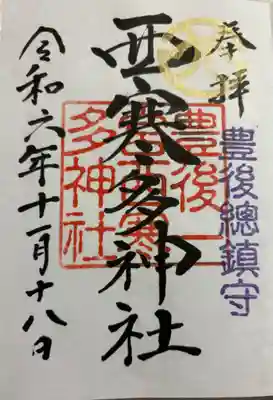 奉拝
豊後總鎮守
西寒多神社
豊後一
宮西寒
多神社
令和六年十一月十八日